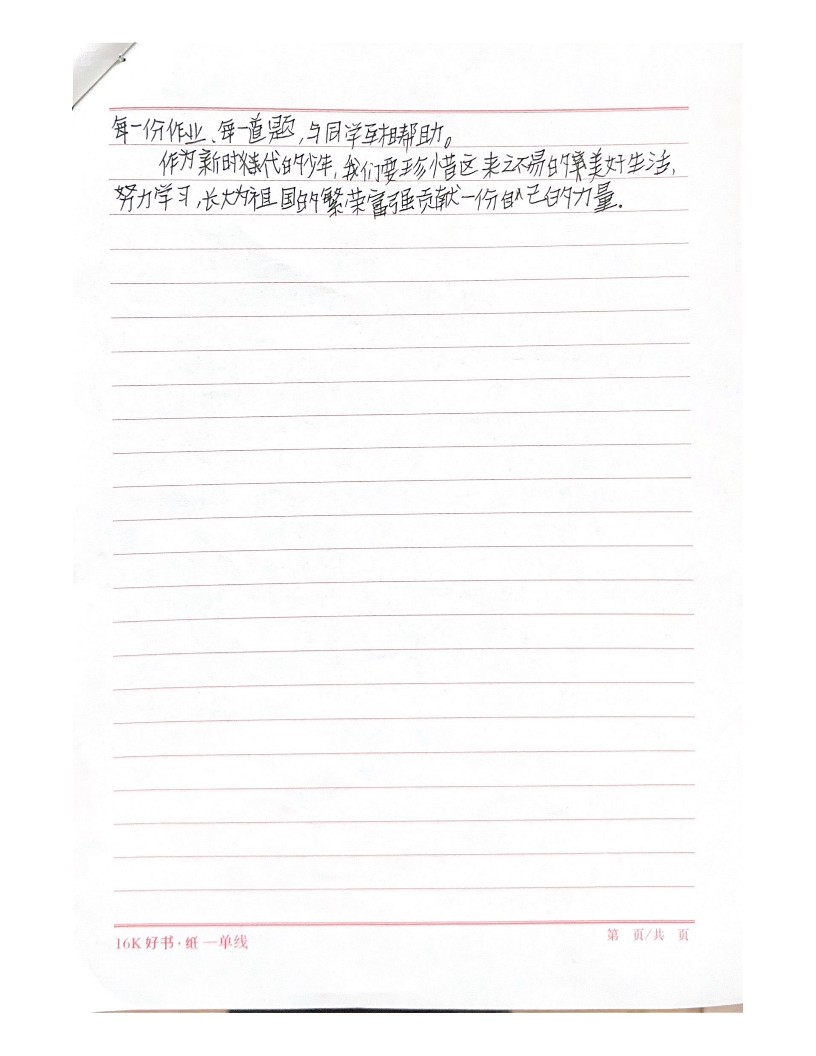 每一份作业、每一道题,与同学互相帮助。
作为新时代的少年,我们要珍惜这来之不易的美好生活,
努力学习,长大为祖国的繁荣富强贡献一份自己的力量.
16K 好书·纸 —单线
第 页/共 页